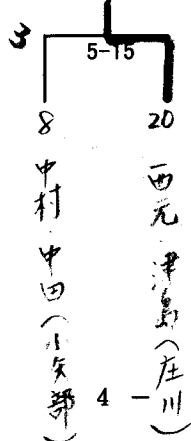 3
5-15
8 20
中村・中田(小矢部)
西元・津島(庄川)
4 -